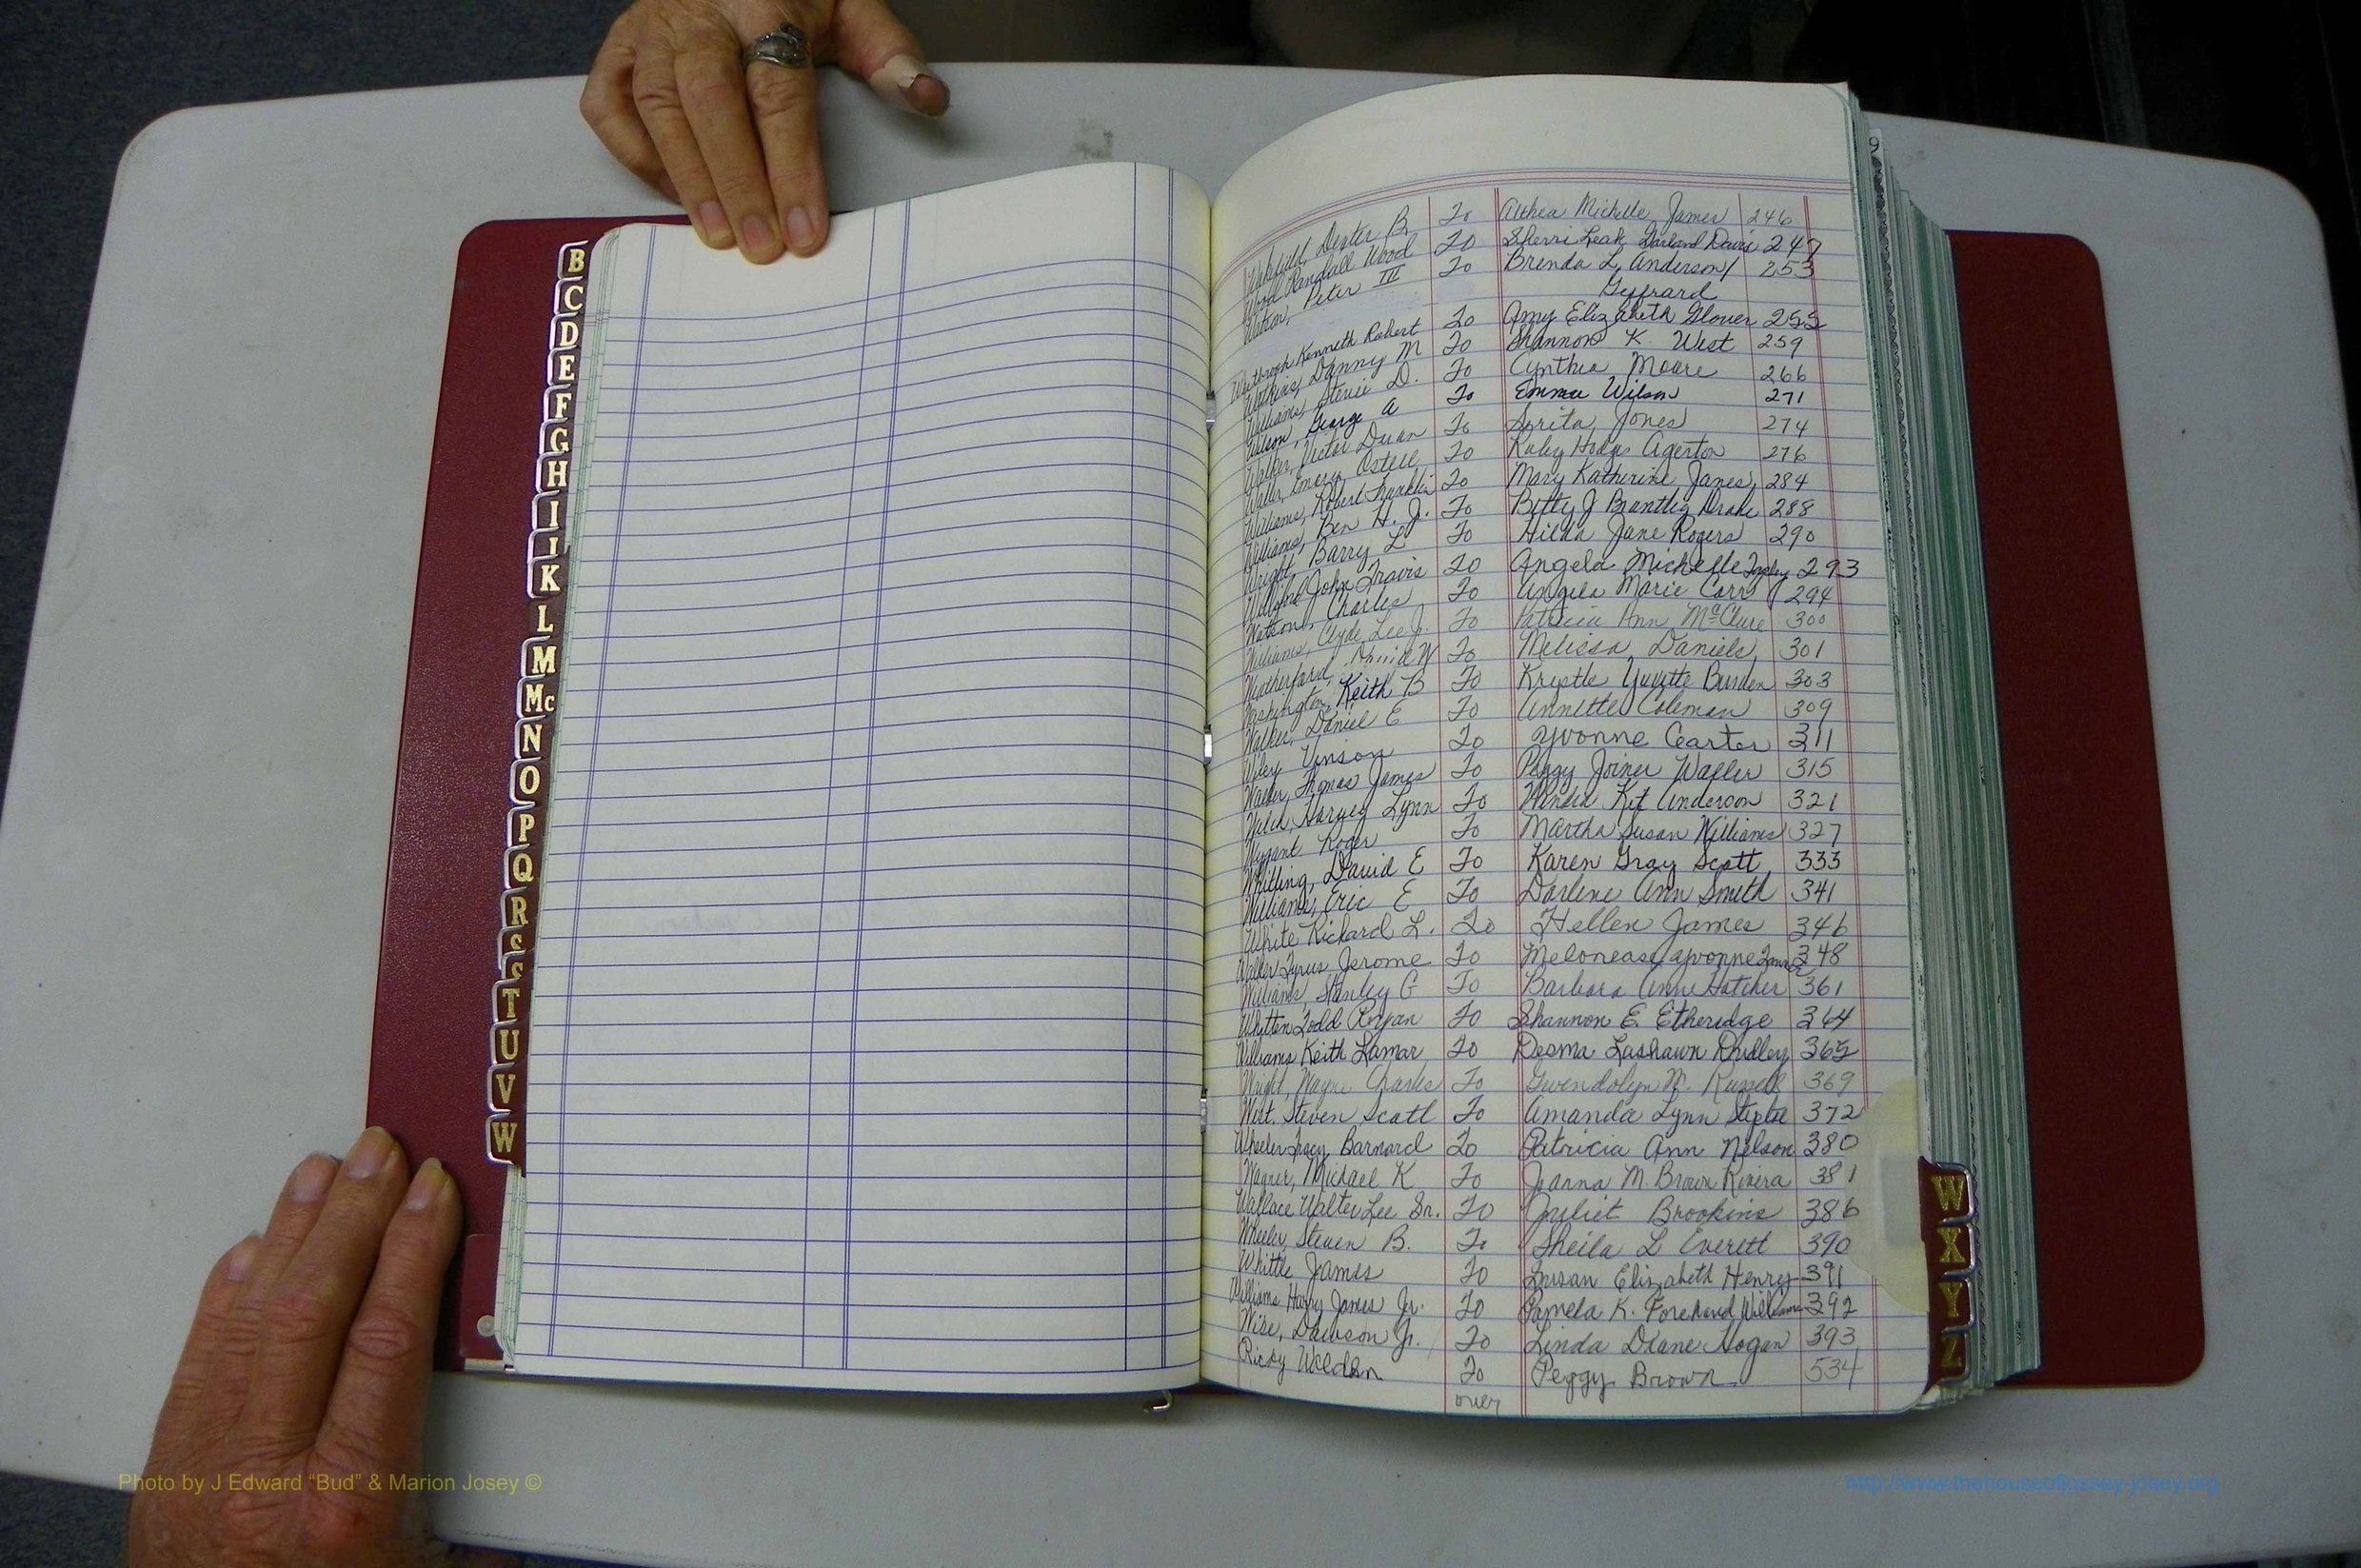 B
C
D
E
F
G
H
I
J
K
L
M
Mc
N
O
P
Q
R
S
S
T
U
V
W
Dexter B To Althea Michelle James 246
Wood Randall Wood To Sherri Leah Garland Davis 247
Watson, Peter III To Brenda L Anderson/ 253
Geffrard
Westbrook Kenneth Robert To Amy Elizabeth Glover 255
Watkins, Danny M To Shannon K. West 259
Williams, Stevie D. To Cynthia Moore 266
Wilson, George A To Emma Wilson 271
Walker, Victor Duan To Jones 274
Emory Ostell To Ruby Hodges Agerton 276
Williams, Robert Franklin To Mary Katherine James 284
Williams, Ben H. J. To Betty J Brantley Drake 288
Wright, Barry L To Hilda Jane Rogers 290
John Travis To Angela Michelle 293
Watson, Charles To Angela Marie Carr 294
Williams, Clyde Lee J. To Patricia Ann McClure 300
Weatherford, David W To Melissa Daniels 301
Washington, Keith B To Krystle Yuvette Burden 303
Walker, Daniel E To Annette Coleman 309
Wiley Vinson To Yvonne Carter 311
Waller, Thomas James To Peggy Joiner Waller 315
Welch, Harvey Lynn To Kit Anderson 321
Wygant Roger To Martha Susan Williams 327
Whitling, David E To Karen Gray Scott 333
Williams, Eric E To Darlene Ann Smith 341
White Richard L. To Hellen James 346
Walker Tyrus Jerome To Melonease Yvonne 348
Williams, Stanley G To Barbara Anne Hatcher 361
Whitten Todd Ryan To Shannon E Etheridge 364
Williams Keith Lamar To Desma Lashawn Dudley 365
Wright, Wayne Charles To Gwendolyn M. Russell 369
West. Steven Scott To Amanda Lynn 372
Wheeler Tracy Barnard To Patricia Ann Nelson 380
Wagner, Michael K To Jeanna M. Brown Rivera 381
Wallace Walter Lee Sr. To Juliet Brookins 386
Wheeler Steven B. To Sheila L Everett 390
Whittle James To Susan Elizabeth Henry 391
Williams Harry James Jr. To Pamela K. Forehand Williams 392
Wise, Dawson Jr. To Linda Diane Hogan 393
Ricky Weldon To Peggy Brown 534
over
W
X
Y
Z
Photo by J Edward “Bud” & Marion Josey ©
http://www.thehouseofjossey-josey.org